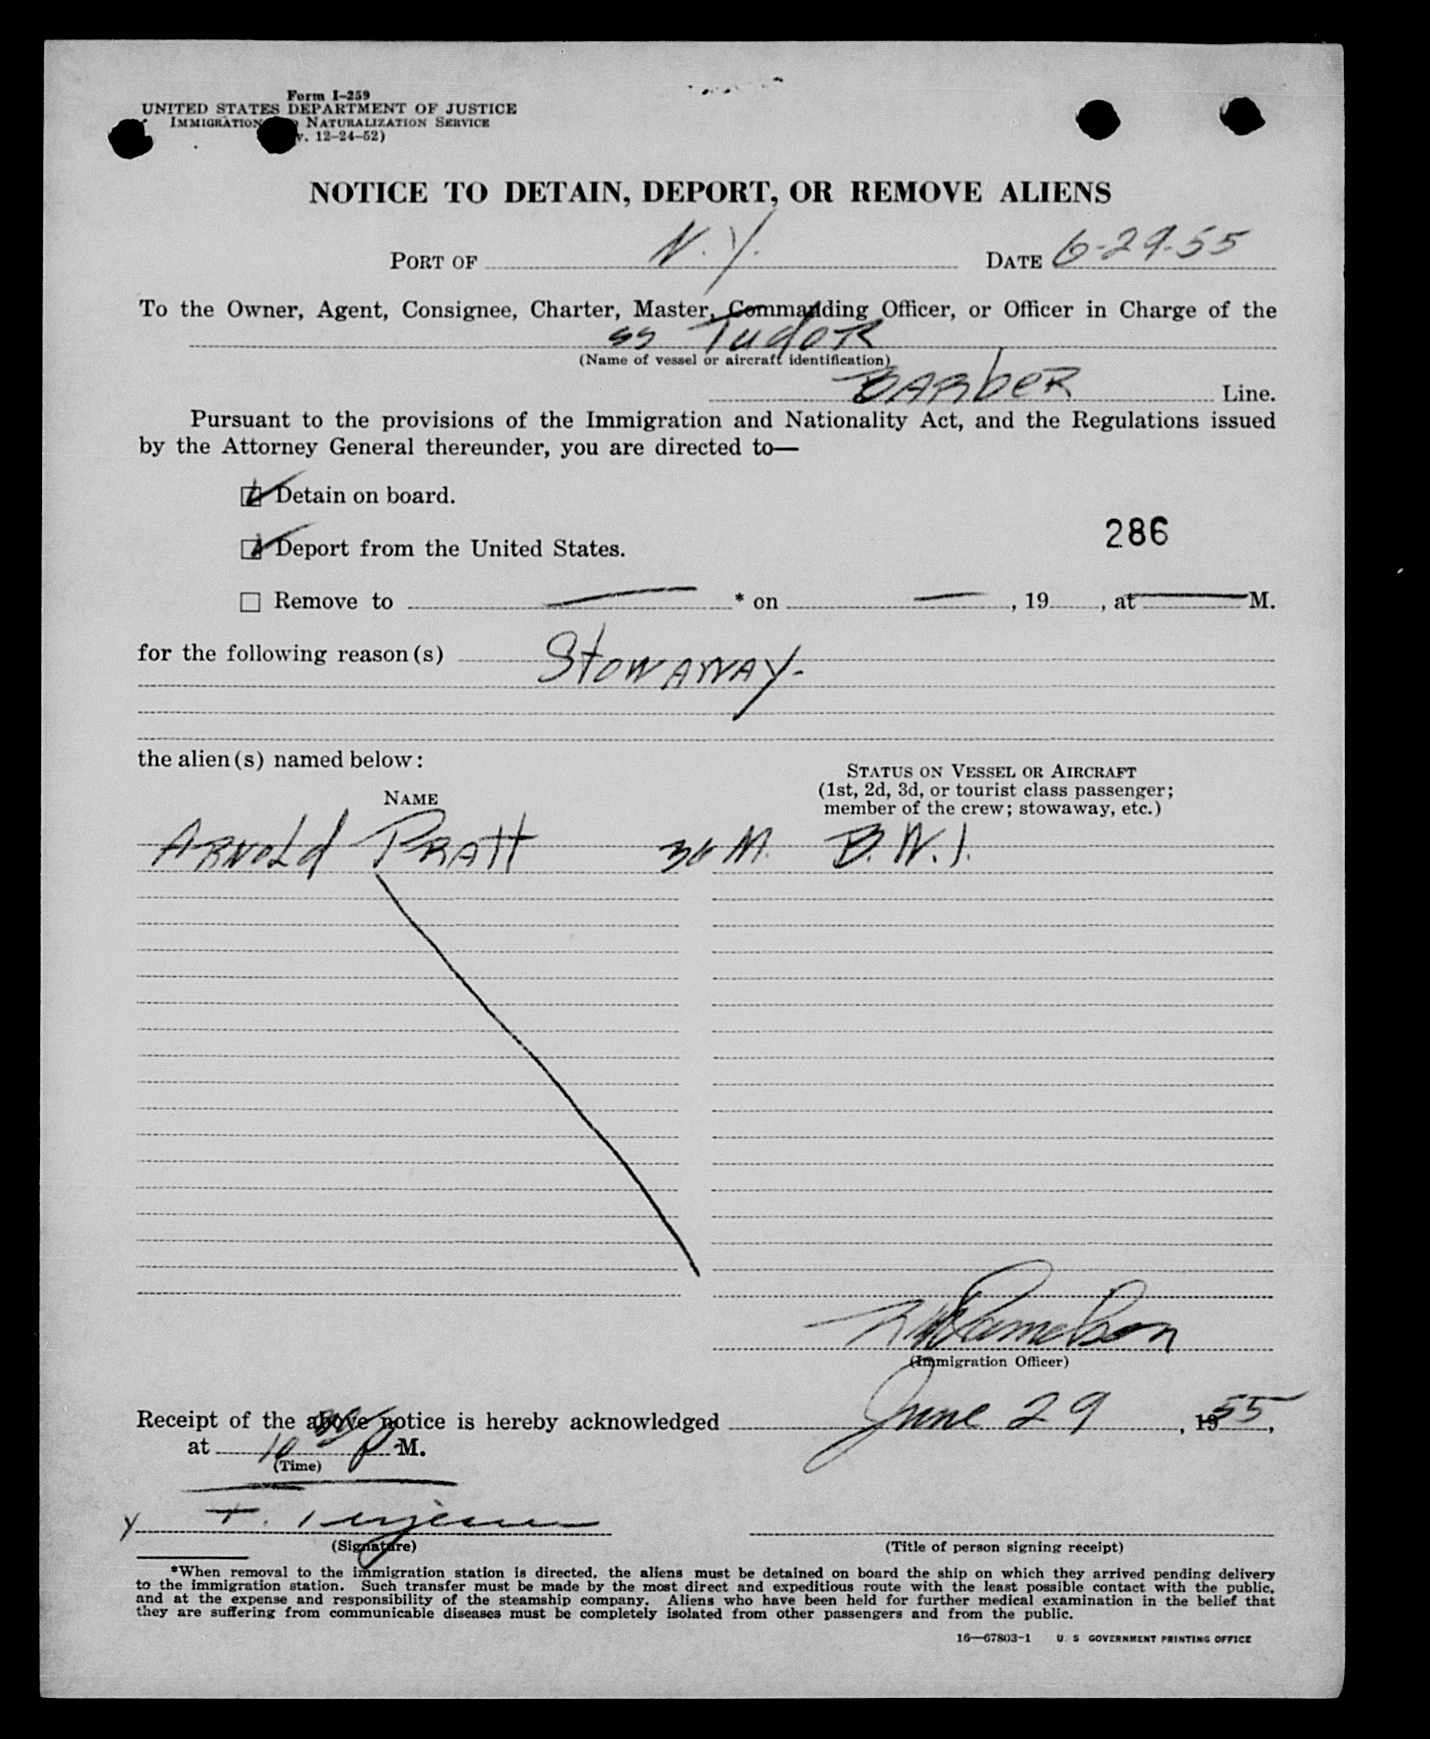 Form I-259
UNITED STATES DEPARTMENT OF JUSTICE
IMMIGRATION NATURALIZATION SERVICE
12-24-52)
NOTICE TO DETAIN, DEPORT, OR REMOVE ALIENS
PORT OF N.Y. DATE 6-29-55
To the Owner, Agent, Consignee, Charter, Master, Commanding Officer, or Officer in Charge of the
SS Tudor
(Name of vessel or aircraft identification)
Barber Line.
Pursuant to the provisions of the Immigration and Nationality Act, and the Regulations issued
by the Attorney General thereunder, you are directed to—
Detain on board.
Deport from the United States.
286
Remove to * on , 19 , at M.
for the following reason(s) Stowaway-
the alien(s) named below:
STATUS ON VESSEL OR AIRCRAFT
(1st, 2d, 3d, or tourist class passenger;
member of the crew; stowaway, etc.)
NAME
Arnold Pratt M. B.W.I.
(Immigration Officer)
Receipt of the above notice is hereby acknowledged June 29, 1955,
at 10 P M.
(Time)
F.
(Signature)
(Title of person signing receipt)
*When removal to the immigration station is directed, the aliens must be detained on board the ship on which they arrived pending delivery
to the immigration station. Such transfer must be made by the most direct and expeditious route with the least possible contact with the public,
and at the expense and responsibility of the steamship company. Aliens who have been held for further medical examination in the belief that
they are suffering from communicable diseases must be completely isolated from other passengers and from the public.
16—67803-1 U. S GOVERNMENT PRINTING OFFICE